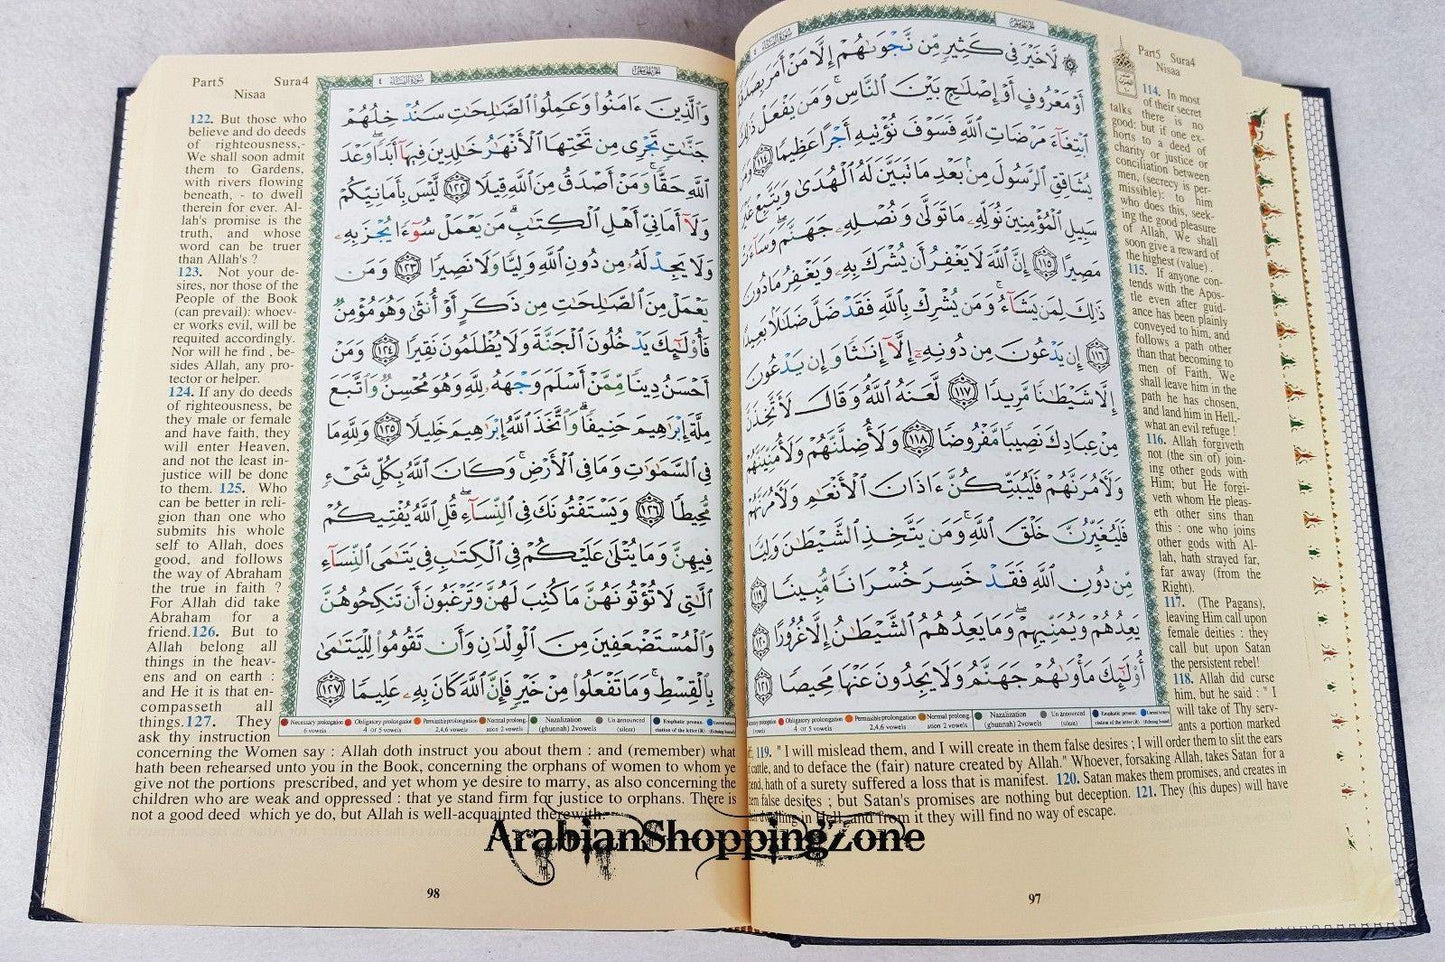 Part5 Sura4
Nisaa
لَّا خَيْرَ فِي كَثِيرٍ مِّن نَّجْوَىٰهُمْ إِلَّا مَنْ أَمَرَ بِصَدَقَةٍ
أَوْ مَعْرُوفٍ أَوْ إِصْلَٰحٍ بَيْنَ النَّاسِ ۚ وَمَن يَفْعَلْ ذَٰلِكَ
ابْتِغَاءَ مَرْضَاتِ اللَّهِ فَسَوْفَ نُؤْتِيهِ أَجْرًا عَظِيمًا ١١٤
يُشَاقِقِ الرَّسُولَ مِن بَعْدِ مَا تَبَيَّنَ لَهُ الْهُدَىٰ وَيَتَّبِعْ غَيْرَ
سَبِيلِ الْمُؤْمِنِينَ نُوَلِّهِ مَا تَوَلَّىٰ وَنُصْلِهِ جَهَنَّمَ ۖ وَسَاءَتْ
مَصِيرًا ١١٥ إِنَّ اللَّهَ لَا يَغْفِرُ أَن يُشْرَكَ بِهِ وَيَغْفِرُ مَا دُونَ
ذَٰلِكَ لِمَن يَشَاءُ ۚ وَمَن يُشْرِكْ بِاللَّهِ فَقَدْ ضَلَّ ضَلَٰلًا بَعِيدًا
١١٦ إِن يَدْعُونَ مِن دُونِهِ إِلَّا إِنَٰثًا وَإِن يَدْعُونَ
إِلَّا شَيْطَٰنًا مَّرِيدًا ١١٧ لَّعَنَهُ اللَّهُ وَقَالَ لَأَتَّخِذَنَّ
مِنْ عِبَادِكَ نَصِيبًا مَّفْرُوضًا ١١٨ وَلَأُضِلَّنَّهُمْ وَلَأُمَنِّيَنَّهُمْ
وَلَءَامُرَنَّهُمْ فَلَيُبَتِّكُنَّ ءَاذَانَ الْأَنْعَٰمِ وَلَءَامُرَنَّهُمْ
فَلَيُغَيِّرُنَّ خَلْقَ اللَّهِ ۚ وَمَن يَتَّخِذِ الشَّيْطَٰنَ وَلِيًّا
مِّن دُونِ اللَّهِ فَقَدْ خَسِرَ خُسْرَانًا مُّبِينًا ١١٩
يَعِدُهُمْ وَيُمَنِّيهِمْ ۖ وَمَا يَعِدُهُمُ الشَّيْطَٰنُ إِلَّا غُرُورًا ١٢٠
أُولَٰئِكَ مَأْوَىٰهُمْ جَهَنَّمُ وَلَا يَجِدُونَ عَنْهَا مَحِيصًا ١٢١
114. In most
of their secret
talks there is no
good: but if one ex-
horts to a deed of
charity or justice or
conciliation between
men, (secrecy is per-
missible): to him
who does this, seek-
ing the good pleasure
of Allah, We shall
soon give a reward of
the highest (value) .
115. If anyone con-
tends with the Apos-
tle even after guid-
ance has been plainly
conveyed to him, and
follows a path other
than that becoming to
men of Faith, We
shall leave him in the
path he has chosen,
and land him in Hell,-
what an evil refuge !
116. Allah forgiveth
not (the sin of) join-
ing other gods with
Him; but He forgi-
veth whom He pleas-
eth other sins than
this : one who joins
other gods with Al-
lah, hath strayed far,
far away (from the
Right).
117. (The Pagans),
leaving Him call upon
female deities : they
call but upon Satan
the persistent rebel!
118. Allah did curse
him, but he said : " I
will take of Thy serv-
ants a portion marked
119. " I will mislead them, and I will create in them false desires ; I will order them to slit the ears
cattle, and to deface the (fair) nature created by Allah." Whoever, forsaking Allah, takes Satan for a
hath of a surety suffered a loss that is manifest. 120. Satan makes them promises, and creates in
false desires ; but Satan's promises are nothing but deception. 121. They (his dupes) will have
dwelling in Hell, and from it they will find no way of escape.
97
Part5 Sura4
Nisaa
سُورَةُ النِّسَاء ٤
وَالَّذِينَ ءَامَنُوا وَعَمِلُوا الصَّٰلِحَٰتِ سَنُدْخِلُهُمْ
جَنَّٰتٍ تَجْرِي مِن تَحْتِهَا الْأَنْهَٰرُ خَٰلِدِينَ فِيهَا أَبَدًا ۖ وَعْدَ
اللَّهِ حَقًّا ۚ وَمَنْ أَصْدَقُ مِنَ اللَّهِ قِيلًا ١٢٢ لَّيْسَ بِأَمَانِيِّكُمْ
وَلَا أَمَانِيِّ أَهْلِ الْكِتَٰبِ ۗ مَن يَعْمَلْ سُوءًا يُجْزَ بِهِ
وَلَا يَجِدْ لَهُ مِن دُونِ اللَّهِ وَلِيًّا وَلَا نَصِيرًا ١٢٣ وَمَن
يَعْمَلْ مِنَ الصَّٰلِحَٰتِ مِن ذَكَرٍ أَوْ أُنثَىٰ وَهُوَ مُؤْمِنٌ
فَأُولَٰئِكَ يَدْخُلُونَ الْجَنَّةَ وَلَا يُظْلَمُونَ نَقِيرًا ١٢٤ وَمَنْ
أَحْسَنُ دِينًا مِّمَّنْ أَسْلَمَ وَجْهَهُ لِلَّهِ وَهُوَ مُحْسِنٌ وَاتَّبَعَ
مِلَّةَ إِبْرَٰهِيمَ حَنِيفًا ۗ وَاتَّخَذَ اللَّهُ إِبْرَٰهِيمَ خَلِيلًا ١٢٥ وَلِلَّهِ مَا
فِي السَّمَٰوَٰتِ وَمَا فِي الْأَرْضِ ۚ وَكَانَ اللَّهُ بِكُلِّ شَيْءٍ
مُّحِيطًا ١٢٦ وَيَسْتَفْتُونَكَ فِي النِّسَاءِ ۖ قُلِ اللَّهُ يُفْتِيكُمْ
فِيهِنَّ وَمَا يُتْلَىٰ عَلَيْكُمْ فِي الْكِتَٰبِ فِي يَتَٰمَى النِّسَاءِ
الَّٰتِي لَا تُؤْتُونَهُنَّ مَا كُتِبَ لَهُنَّ وَتَرْغَبُونَ أَن تَنكِحُوهُنَّ
وَالْمُسْتَضْعَفِينَ مِنَ الْوِلْدَٰنِ وَأَن تَقُومُوا لِلْيَتَٰمَىٰ
بِالْقِسْطِ ۚ وَمَا تَفْعَلُوا مِنْ خَيْرٍ فَإِنَّ اللَّهَ كَانَ بِهِ عَلِيمًا ١٢٧
Necessary prolongation 6 vowels
Obligatory prolongation 4 or 5 vowels
Permissible prolongation 2,4,6 vowels
Normal prolongation 2 vowels
Nazalization (ghunnah) 2vowels
Un announced (silent)
122. But those who
believe and do deeds
of righteousness,-
We shall soon admit
them to Gardens,
with rivers flowing
beneath, - to dwell
therein for ever. Al-
lah's promise is the
truth, and whose
word can be truer
than Allah's ?
123. Not your de-
sires, nor those of the
People of the Book
(can prevail): whoev-
er works evil, will be
requited accordingly.
Nor will he find , be-
sides Allah, any pro-
tector or helper.
124. If any do deeds
of righteousness, be
they male or female
and have faith, they
will enter Heaven,
and not the least in-
justice will be done
to them. 125. Who
can be better in reli-
gion than one who
submits his whole
self to Allah, does
good, and follows
the way of Abraham
the true in faith ?
For Allah did take
Abraham for a
friend.126. But to
Allah belong all
things in the heav-
ens and on earth :
and He it is that en-
compasseth all
things.127. They
ask thy instruction
concerning the Women say : Allah doth instruct you about them : and (remember) what
hath been rehearsed unto you in the Book, concerning the orphans of women to whom ye
give not the portions prescribed, and yet whom ye desire to marry, as also concerning the
children who are weak and oppressed : that ye stand firm for justice to orphans. There is
not a good deed which ye do, but Allah is well-acquainted therewith.
98
ArabianShoppingZone